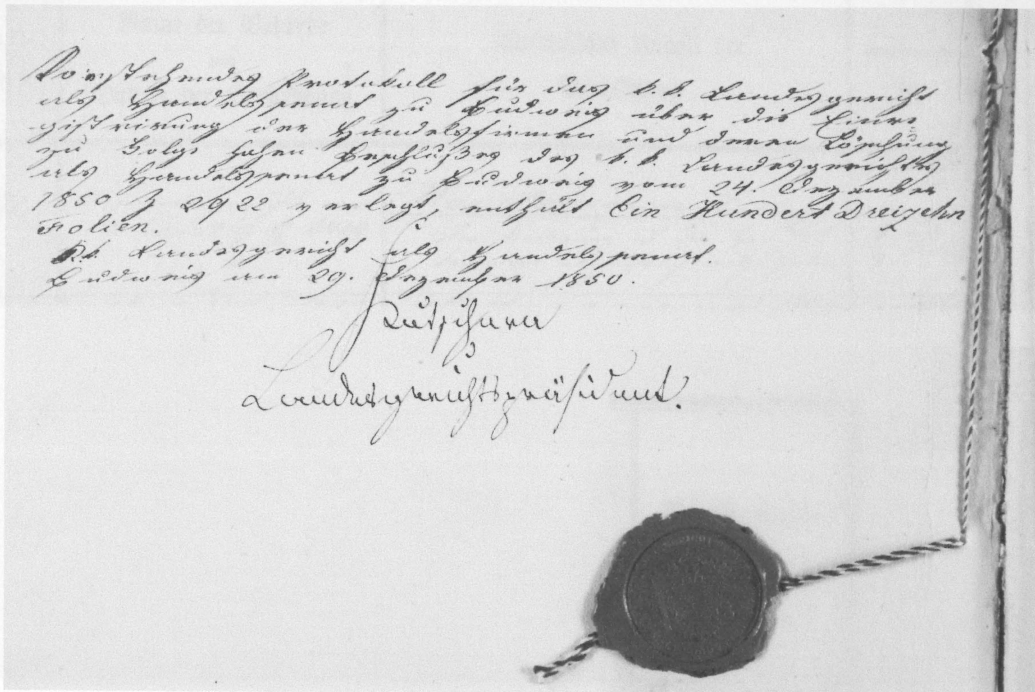 Vorstehendes Protokoll für das k. k. Landesgericht
als Handelssenat zu Budweis über die Einre-
gistrirung der Handelsfirmen und deren Löschung
zu Folge hohen Beschlußes des k. k. Landesgerichtes
als Handelssenat zu Budweis vom 24. Dezember
1850 Z 2922 verlegt, enthält Ein Hundert Dreizehn
Folien.
K. k. Landesgericht als Handelssenat.
Budweis am 29. Dezember 1850.
Kutschera
Landesgerichtspräsident.